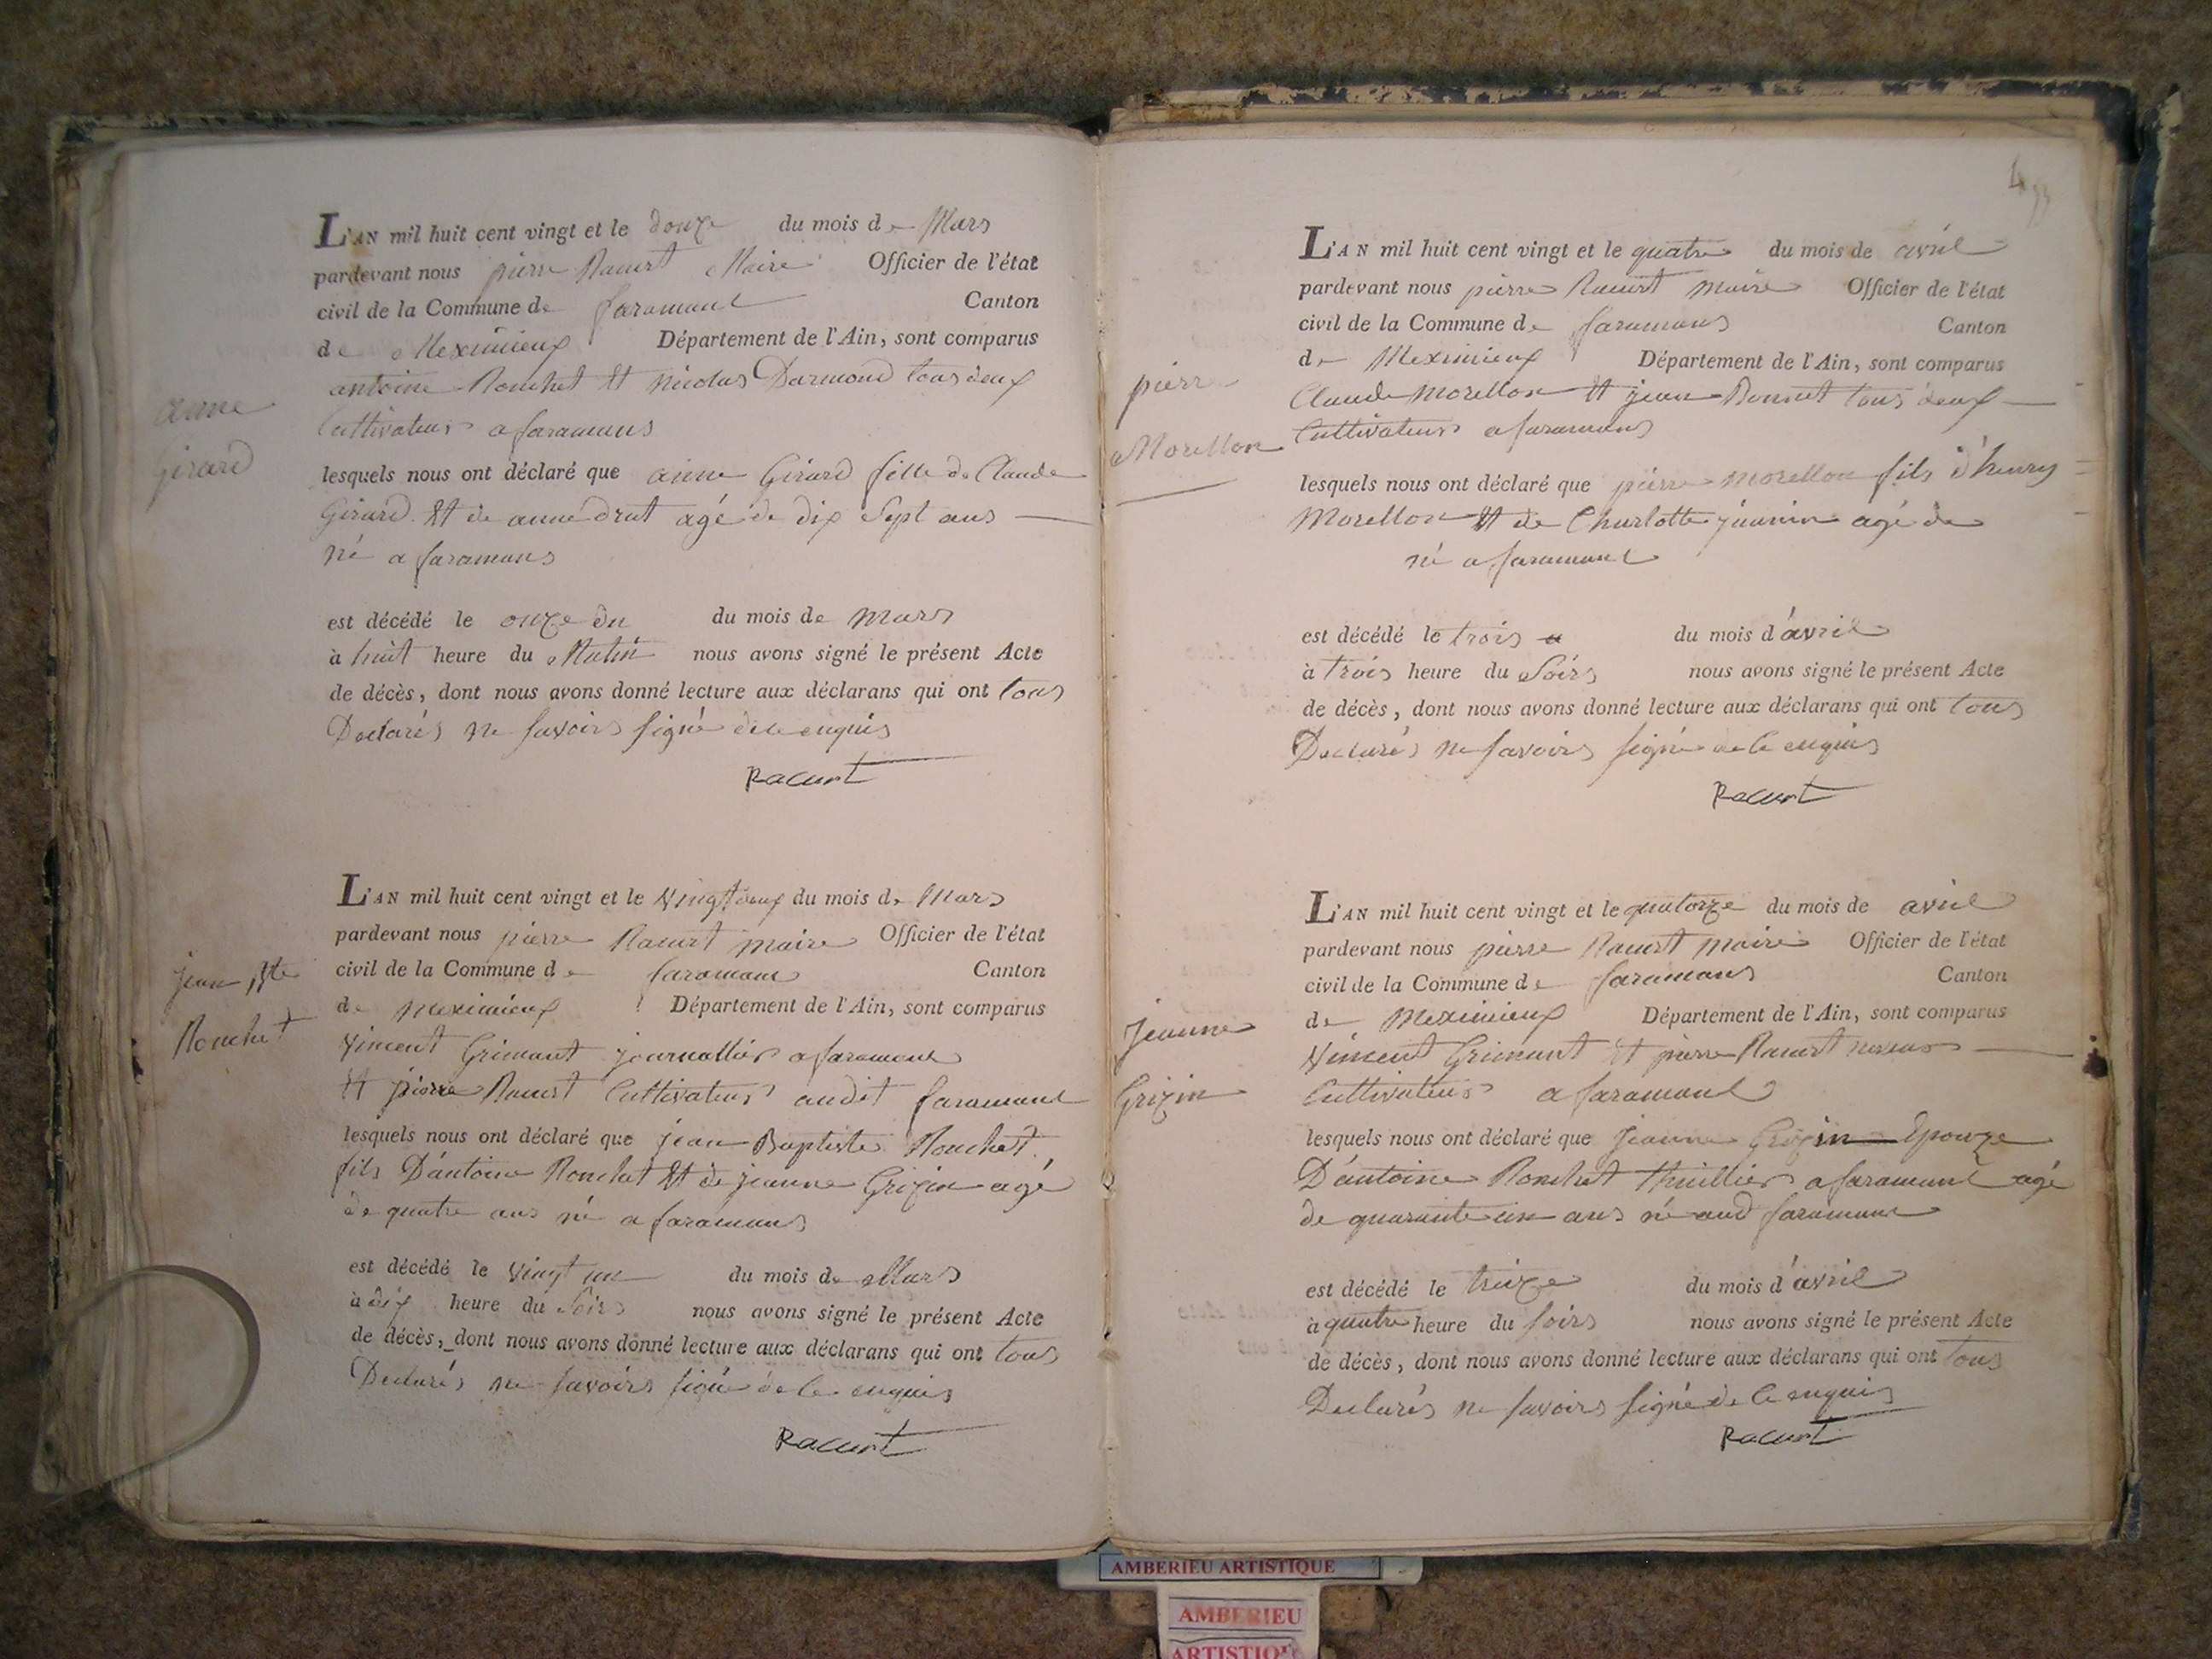 anne
Girard
L'AN mil huit cent vingt et le douze du mois de Mars
pardevant nous pierre Racurt Maire Officier de l'état
civil de la Commune de faramans Canton
de Meximieux Département de l'Ain, sont comparus
antoine Ronchet Et nicolas Darmond tous deux
Cultivateurs a faramans
lesquels nous ont déclaré que anne Girard fille de Claude
Girard Et de anne drut agé de dix Sept ans
né a faramans
est décédé le onze du du mois de mars
à huit heure du Matin nous avons signé le présent Acte
de décès, dont nous avons donné lecture aux déclarans qui ont tous
Declarés ne savoirs signé de ce enquis
Racurt
jean Bte
Ronchet
L'AN mil huit cent vingt et le vingt deux du mois de Mars
pardevant nous pierre Racurt maire Officier de l'état
civil de la Commune de faramans Canton
de meximieux Département de l'Ain, sont comparus
vincent Grimant journallier a faramans
Et pierre Racurt Cultivateurs audit faramans
lesquels nous ont déclaré que jean Baptiste Ronchet
fils D'antoine Ronchet Et de jeanne Grizin agé
de quatre ans né a faramans
est décédé le vingt un du mois de Mars
à dix heure du Soirs nous avons signé le présent Acte
de décès, dont nous avons donné lecture aux déclarans qui ont tous
Declarés ne savoirs signé de ce enquis
Racurt
pierre
Morellon
L'AN mil huit cent vingt et le quatre du mois de avril
pardevant nous pierre Racurt maire Officier de l'état
civil de la Commune de faramans Canton
de Meximieux Département de l'Ain, sont comparus
Claude Morellon Et jean Bonnet tous deux
Cultivateurs a faramans
lesquels nous ont déclaré que pierre morellon fils d'henry
Morellon Et de Charlotte jeanin agé de
né a faramans
est décédé le trois du mois d'avril
à trois heure du Soirs nous avons signé le présent Acte
de décès, dont nous avons donné lecture aux déclarans qui ont tous
Declarés ne savoirs signé de ce enquis
Racurt
Jeanne
Grizin
L'AN mil huit cent vingt et le quatorze du mois de avril
pardevant nous pierre Racurt maire Officier de l'état
civil de la Commune de faramans Canton
de Meximieux Département de l'Ain, sont comparus
Vincent Grimant Et pierre Racurt neveus
Cultivateurs a faramans
lesquels nous ont déclaré que Jeanne Grizin Epouze
D'antoine Ronchet thuillier a faramans agé
de quarante un ans né aud faramans
est décédé le treize du mois d'avril
à quatre heure du soirs nous avons signé le présent Acte
de décès, dont nous avons donné lecture aux déclarans qui ont tous
Declarés ne savoirs signé de ce enquis
Racurt
AMBERIEU ARTISTIQUE
AMBERIEU
ARTISTIQUE